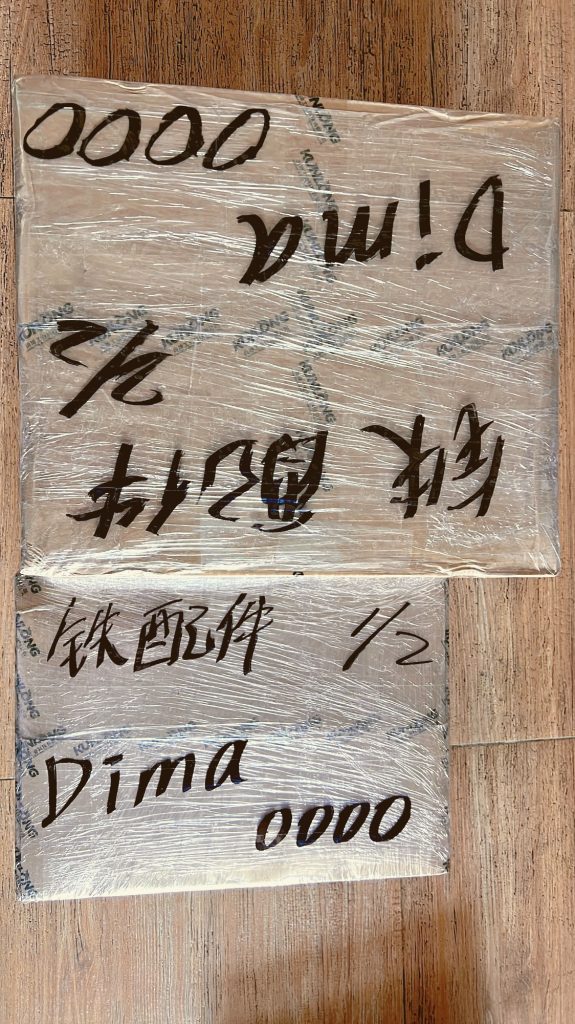 铁配件 2/2
Dima
0000
铁配件 1/2
Dima
0000
KUNLONG